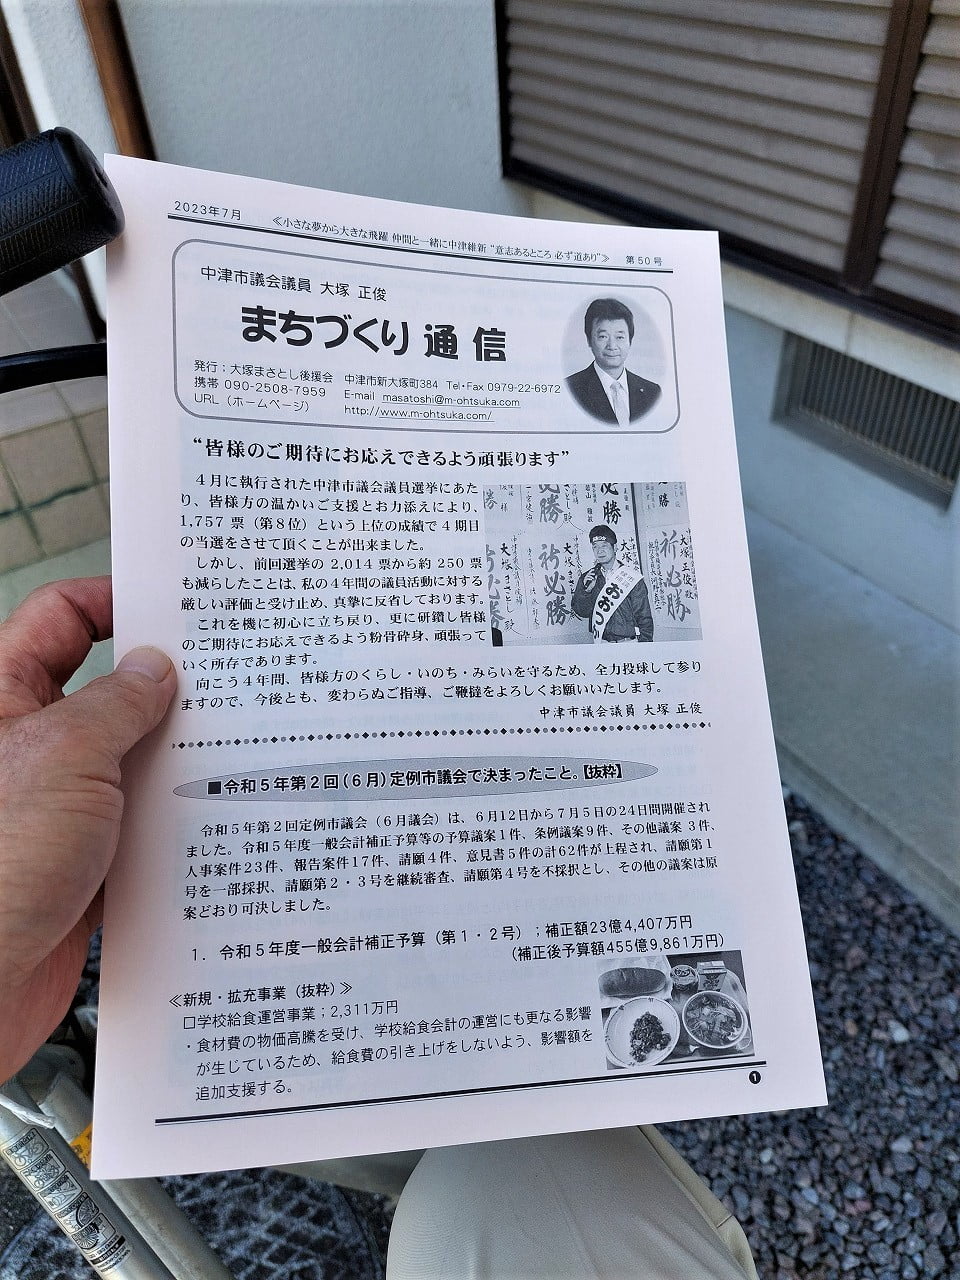 2023年7月
≪小さな夢から大きな飛躍 仲間と一緒に中津維新 “意志あるところ 必ず道あり”≫
第50号
中津市議会議員 大塚 正俊
まちづくり通信
発行：大塚まさとし後援会 中津市新大塚町384 Tel・Fax 0979-22-6972
携帯 090-2508-7959 E-mail masatoshi@m-ohtsuka.com
URL（ホームページ） http://www.m-ohtsuka.com/
“皆様のご期待にお応えできるよう頑張ります”
４月に執行された中津市議会議員選挙にあた
り、皆様方の温かいご支援とお力添えにより、
1,757 票（第８位）という上位の成績で４期目
の当選をさせて頂くことが出来ました。
しかし、前回選挙の 2,014 票から約 250 票
も減らしたことは、私の４年間の議員活動に対する
厳しい評価と受け止め、真摯に反省しております。
これを機に初心に立ち戻り、更に研鑽し皆様
のご期待にお応えできるよう粉骨砕身、頑張って
いく所存であります。
向こう４年間、皆様方のくらし・いのち・みらいを守るため、全力投球して参り
ますので、今後とも、変わらぬご指導、ご鞭撻をよろしくお願いいたします。
中津市議会議員 大塚 正俊
必勝
祈必勝
大塚まさとし
おおつか
祈必勝
大塚正俊
■令和５年第２回（６月）定例市議会で決まったこと。【抜粋】
令和５年第２回定例市議会（６月議会）は、６月12日から７月５日の24日間開催され
ました。令和５年度一般会計補正予算等の予算議案１件、条例議案９件、その他議案 ３件、
人事案件２３件、報告案件１７件、請願４件、意見書５件の計６２件が上程され、請願第１
号を一部採択、請願第２・３号を継続審査、請願第４号を不採択とし、その他の議案は原
案どおり可決しました。
１．令和５年度一般会計補正予算（第１・２号）；補正額23億4,407万円
（補正後予算額455億9,861万円）
≪新規・拡充事業（抜粋）≫
□学校給食運営事業；2,311万円
・食材費の物価高騰を受け、学校給食会計の運営にも更なる影響
が生じているため、給食費の引き上げをしないよう、影響額を
追加支援する。
1